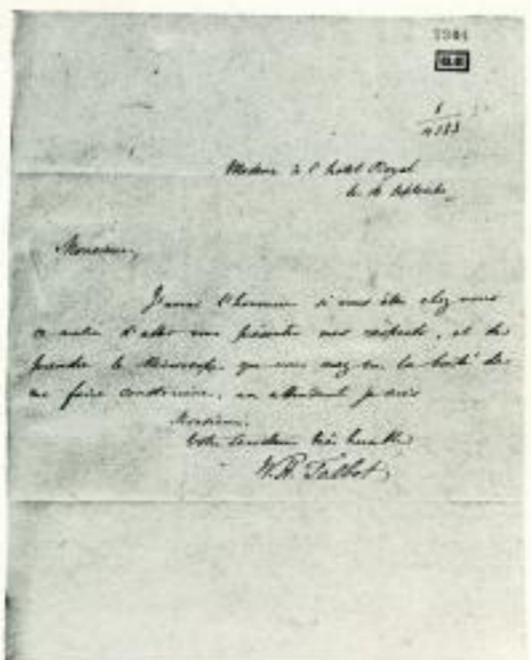 7304
1
4183
Modène à l'hotel Royal
le 16 Septembre
Monsieur,
J'aurai l'honneur si vous êtes chez vous
ce matin d'aller vous présenter mes respects, et de
prendre le Microscope que vous avez eu la bonté de
me faire construire, en attendant je suis
Monsieur
Votre Serviteur très humble
W.H. Talbot